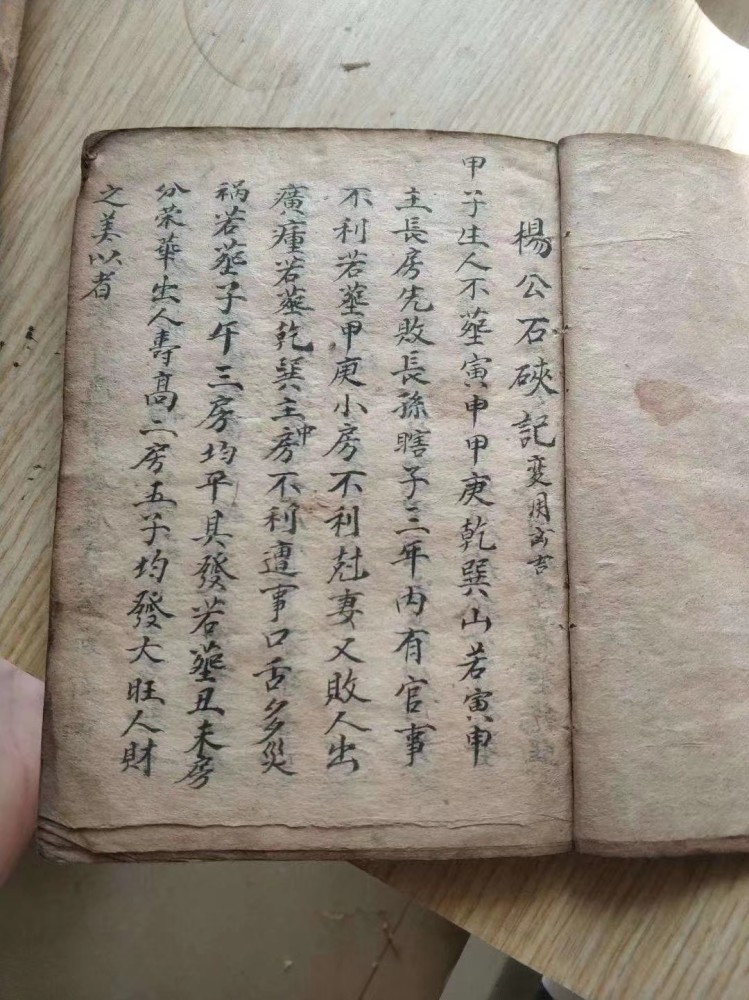 楊公石硤記 変用函吉
甲子生人不塟寅申甲庚乾巽山若寅申
主長房先敗長孫瞎子三年内有官事
不利若塟甲庚小房不利尅妻又敗人出
廣瘇若塟乾巽主房中不利遭事口舌多災
祸若塟子午三房均平具發若塟丑未房
分荣華出人壽高二房五子均發大旺人財
之美以者